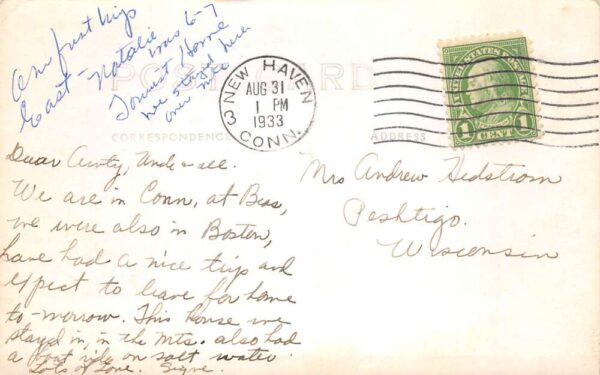 Our first trip
East - Natalie
was 6-7
Tourist Home
we stayed here
over nite
POST CARD
CORRESPONDENCE
ADDRESS
NEW HAVEN
AUG 31
1 PM
1933
3
CONN.
UNITED STATES POSTAGE
1 1
CENT
Dear Aunty, Uncle & all.
We are in Conn, at Bess,
we were also in Boston,
have had a nice trip and
expect to leave for home
to-morrow. This house we
stayed in, in the Mts. also had
a boat ride on salt water
Lots of Love. Signe.
Mrs Andrew Hedstrom
Peshtigo.
Wisconsin